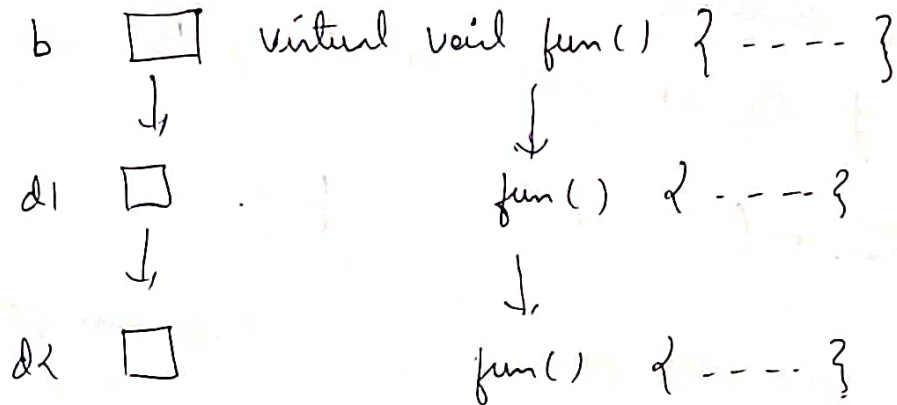 b virtual void fun() { ---- }
d1 fun() { ---- }
d2 fun() { ---- }